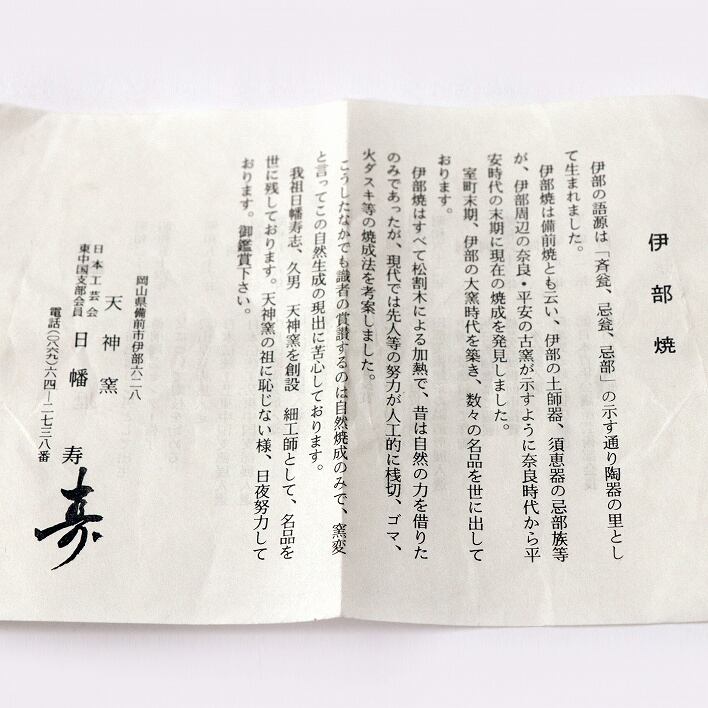 伊部焼
伊部の語源は「斉瓮、忌瓮、忌部」の示す通り陶器の里とし
て生まれました。
伊部焼は備前焼とも云い、伊部の土師器、須恵器の忌部族等
が、伊部周辺の奈良・平安の古窯が示すように奈良時代から平
安時代の末期に現在の焼成を発見しました。
室町末期、伊部の大窯時代を築き、数々の名品を世に出して
おります。
伊部焼はすべて松割木による加熱で、昔は自然の力を借りた
のみであったが、現代では先人等の努力が人工的に桟切、ゴマ、
火ダスキ等の焼成法を考案しました。
こうしたなかでも識者の賞讃するのは自然焼成のみで、窯変
と言ってこの自然生成の現出に苦心しております。
我祖日幡寿志、久男 天神窯を創設 細工師として、名品を
世に残しております。天神窯の祖に恥じない様、日夜努力して
おります。御鑑賞下さい。
岡山県備前市伊部六二八
天神窯
日本工芸会
東中国支部会員 日幡 寿
電話(〇八六九)六四―二七三八番
寿